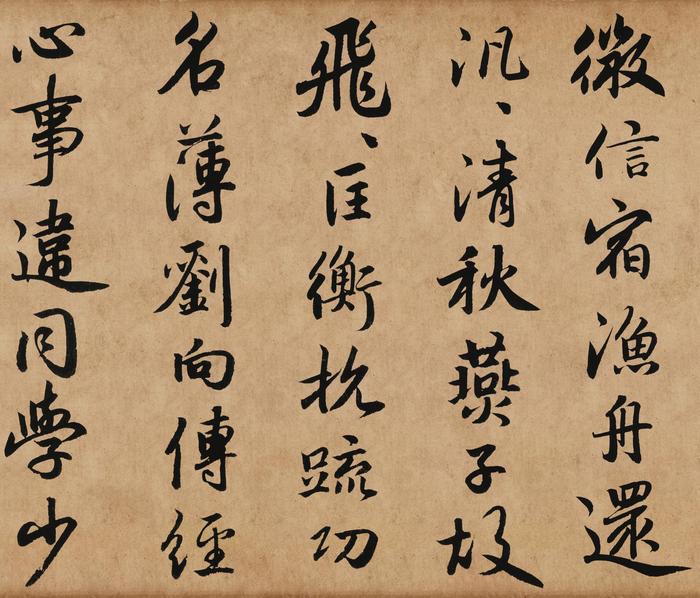 微信宿漁舟還
汎、清秋燕子故
飛、匡衡抗疏功
名薄劉向傳經
心事違同學少